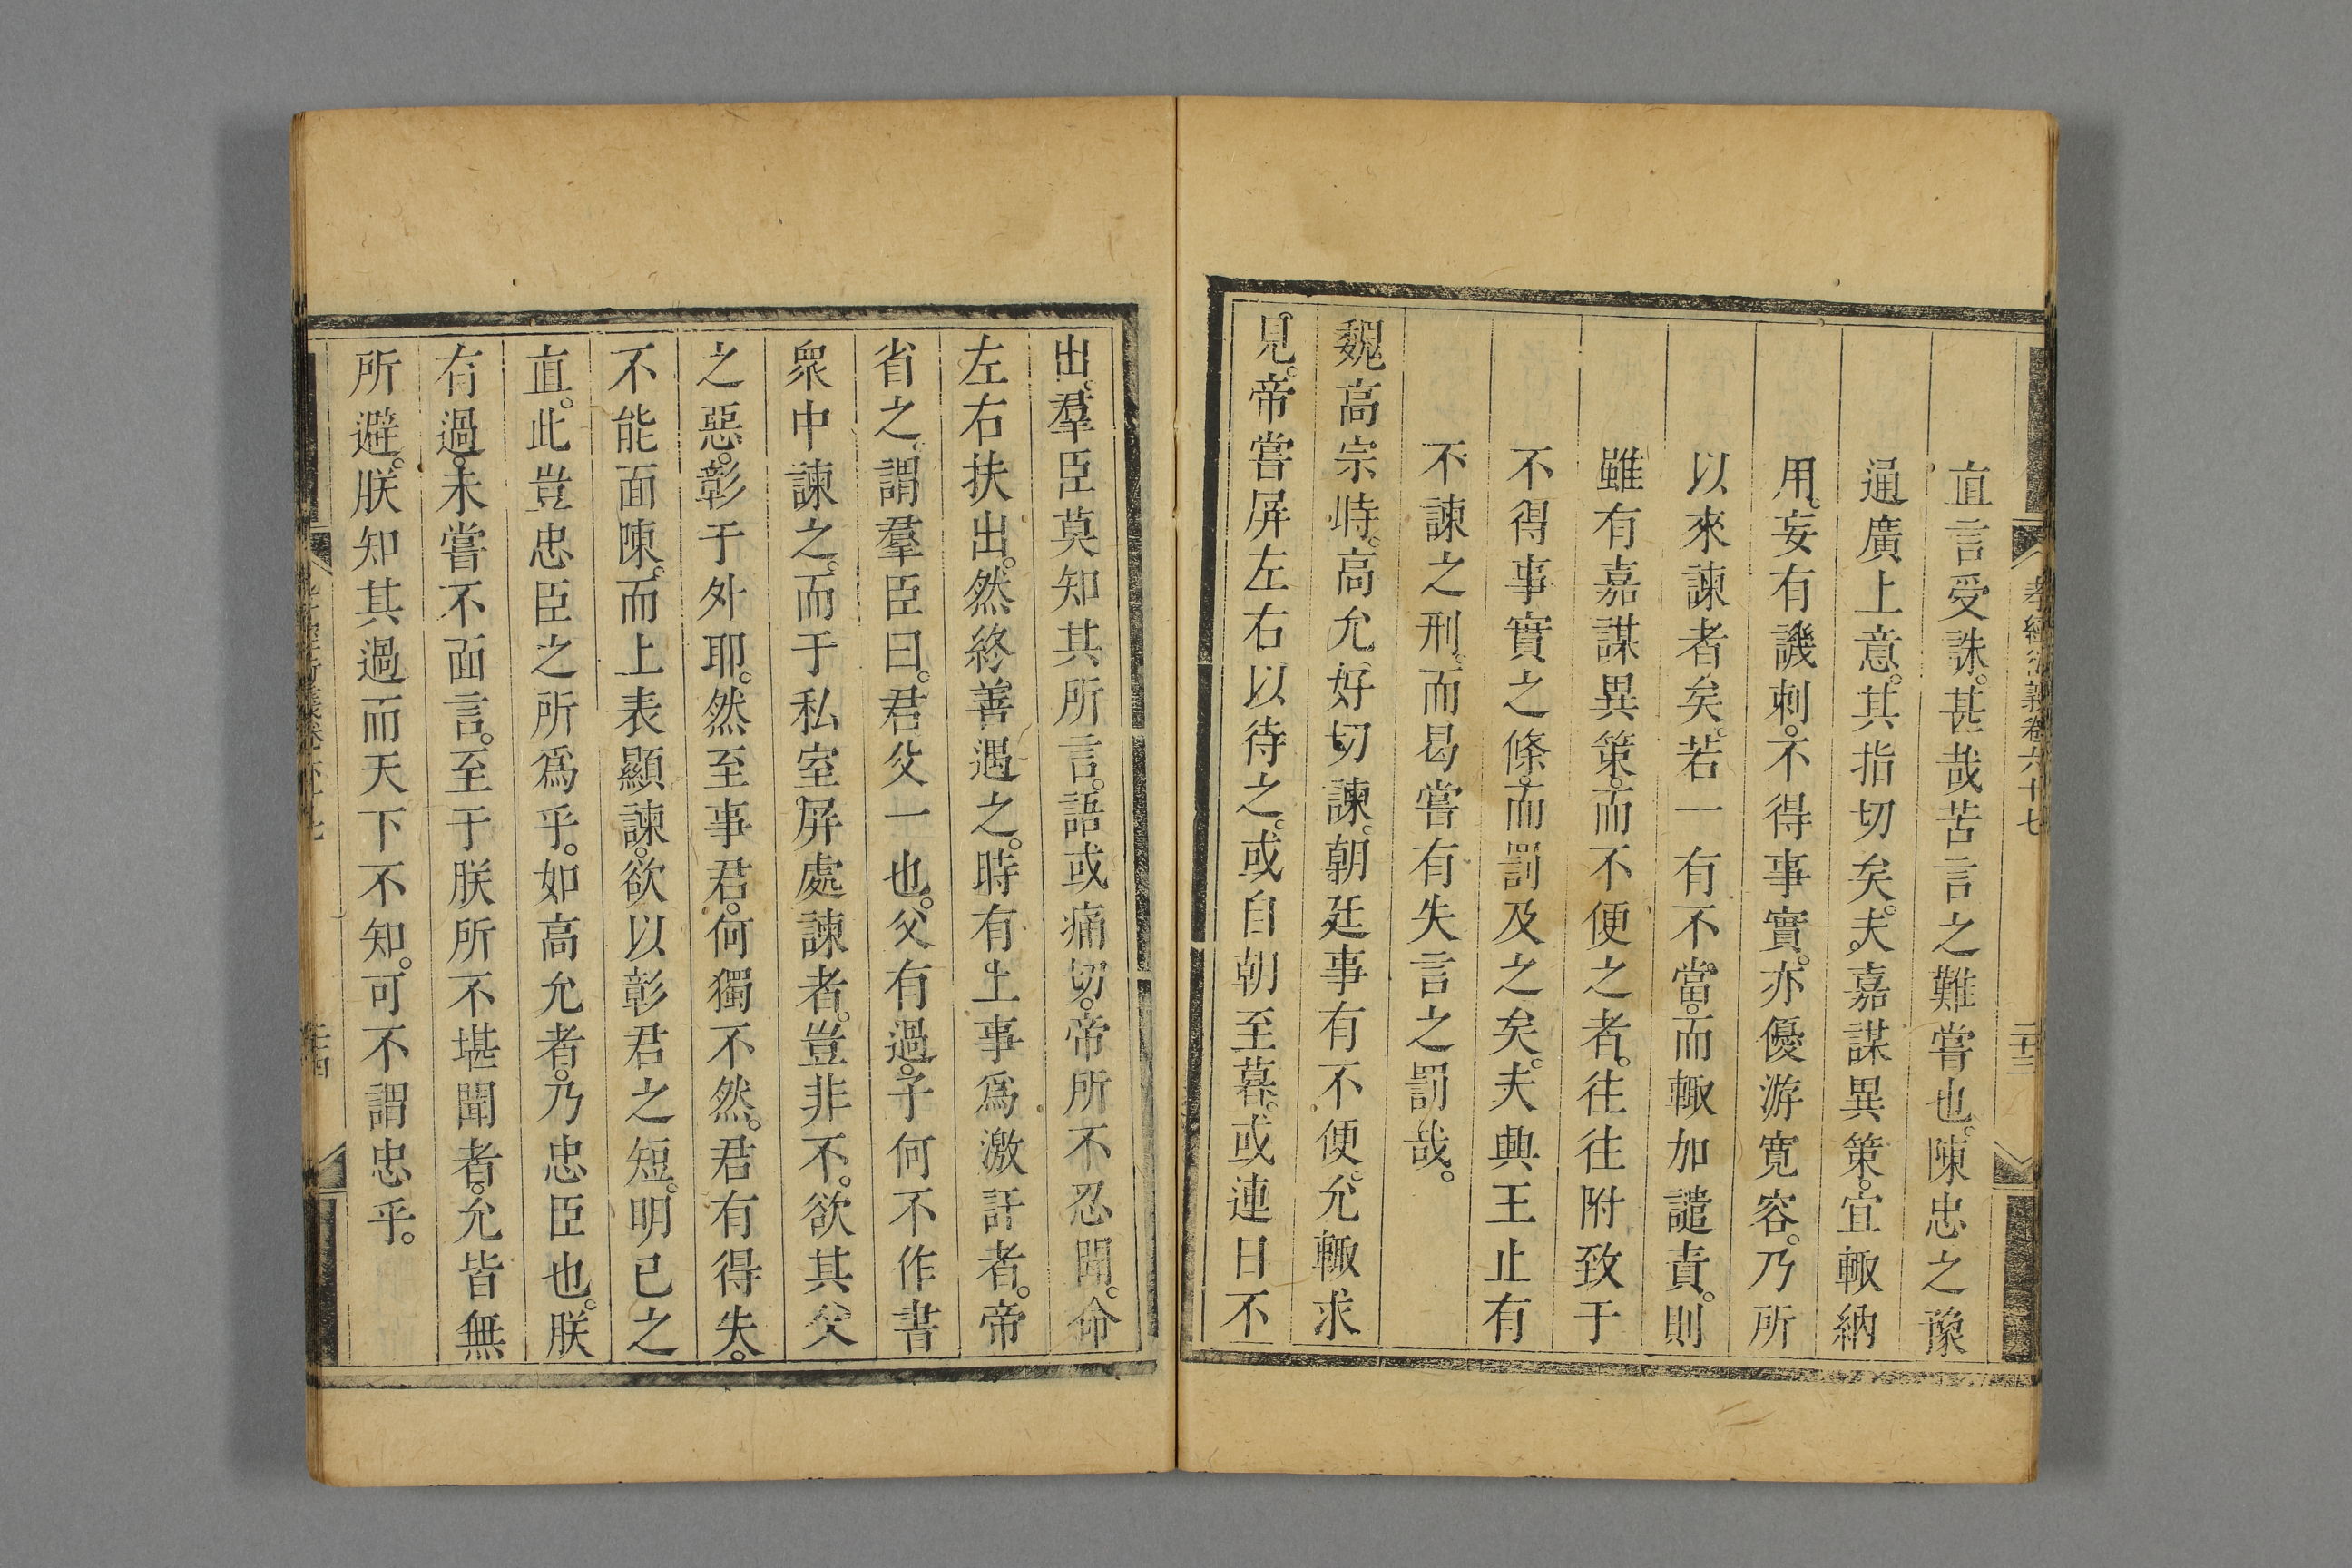 孝經衍義卷六十七
二十三
直言受誅。甚哉苦言之難嘗也。陳忠之豫
通廣上意。其指切矣。夫嘉謀異策。宜輙納
用。妄有譏刺。不得事實。亦優游寛容。乃所
以來諫者矣。若一有不當。而輙加譴責。則
雖有嘉謀異策。而不便之者。往往附致于
不得事實之條。而罰及之矣。夫興王止有
不諫之刑。而曷嘗有失言之罰哉。
魏高宗時。高允好切諫。朝廷事有不便。允輙求
見。帝嘗屏左右以待之。或自朝至暮。或連日不
出。羣臣莫知其所言。語或痛切。帝所不忍聞。命
左右扶出。然終善遇之。時有上事爲激訐者。帝
省之。謂羣臣曰。君父一也。父有過。子何不作書
衆中諫之。而于私室屏處諫者。豈非不欲其父
之惡。彰于外耶。然至事君。何獨不然。君有得失。
不能面陳。而上表顯諫。欲以彰君之短。明已之
直。此豈忠臣之所爲乎。如高允者。乃忠臣也。朕
有過。未嘗不面言。至于朕所不堪聞者。允皆無
所避。朕知其過而天下不知。可不謂忠乎。